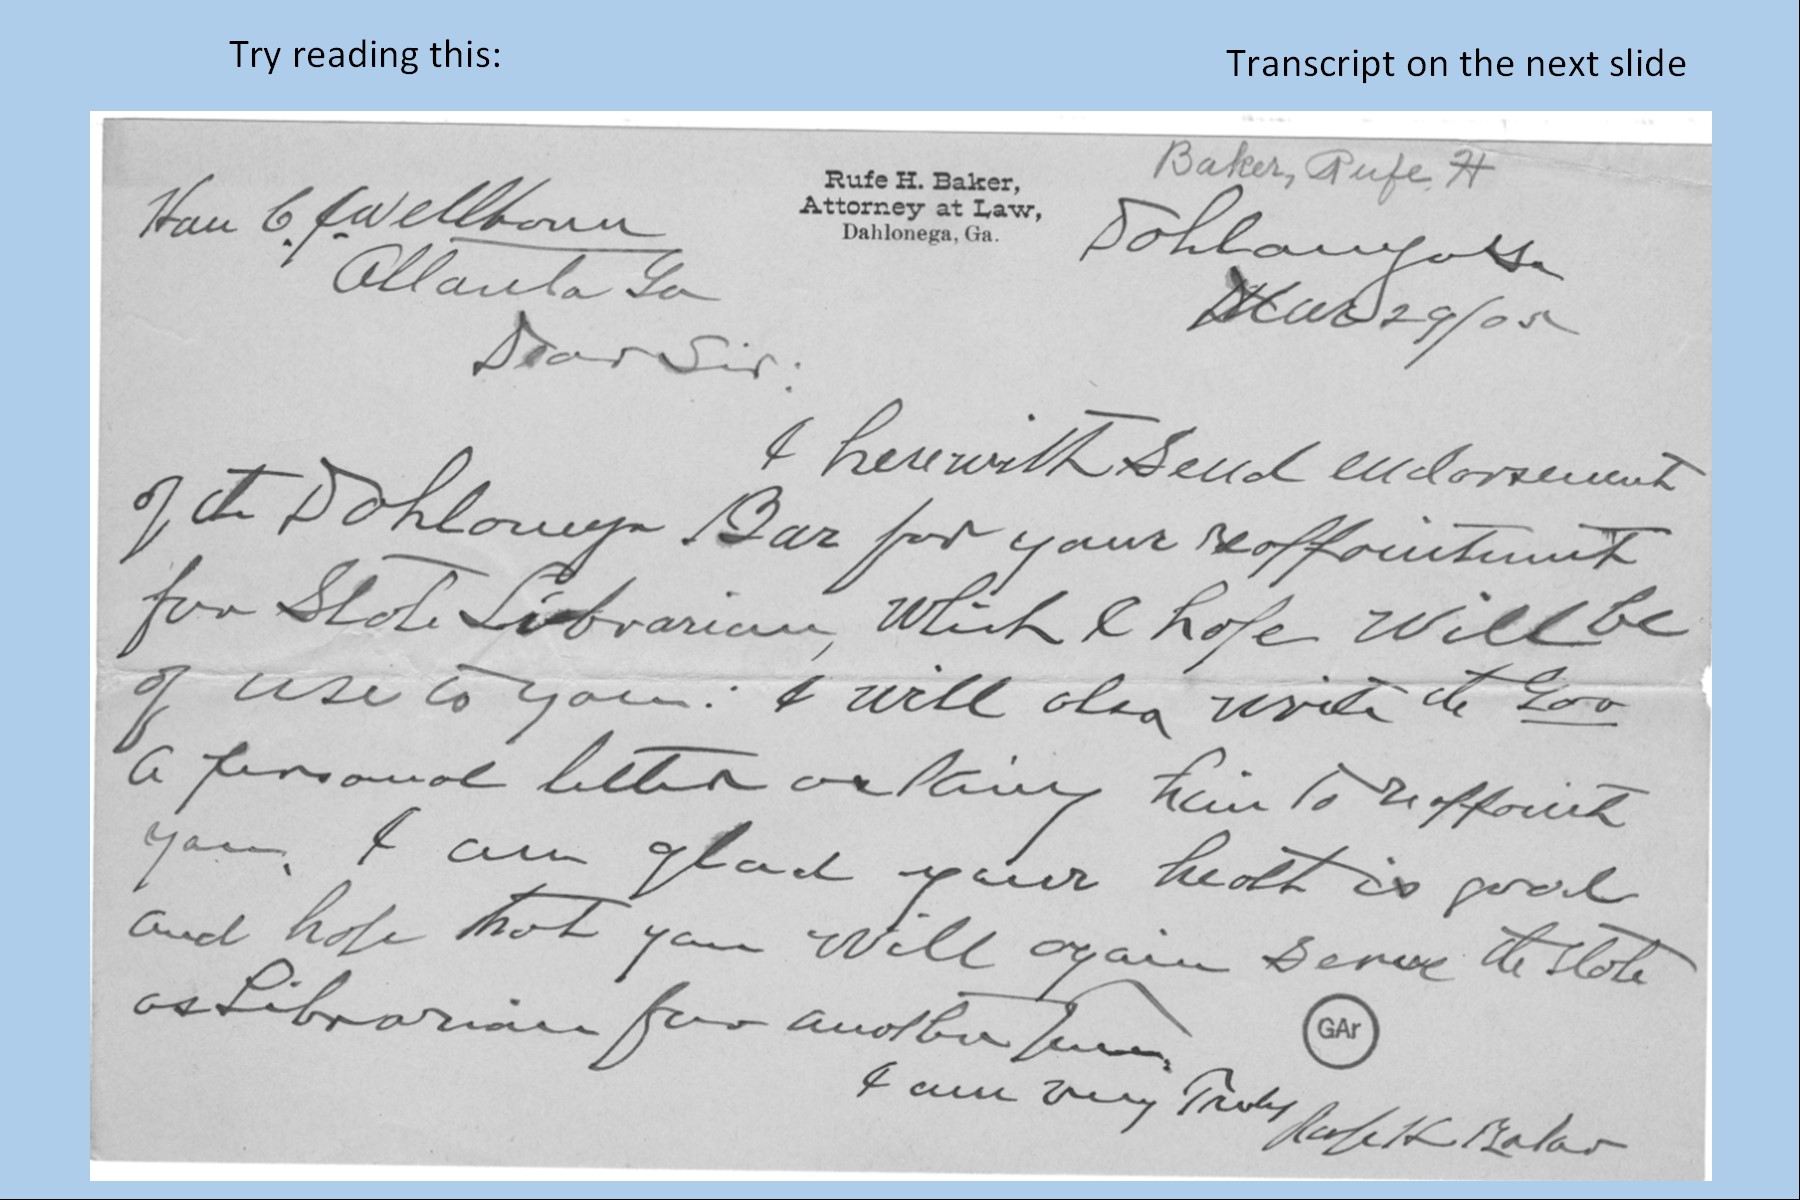 Try reading this:
Transcript on the next slide
Baker, Rufe, H
Rufe H. Baker,
Attorney at Law,
Dahlonega, Ga.
Hon C. J. Wellborn
Atlanta Ga
Dahlonega Ga
Mar 29/05
Dear Sir:
I herewith send endorsement
of the Dahlonega Bar for your reappointment
for State Librarian, which I hope will be
of use to you. I will also write the Gov
a personal letter asking him to reappoint
you. I am glad your healt is good
and hope that you will again serve the State
as Librarian for another term.
I am very Truly
Rufe H Baker
GAr